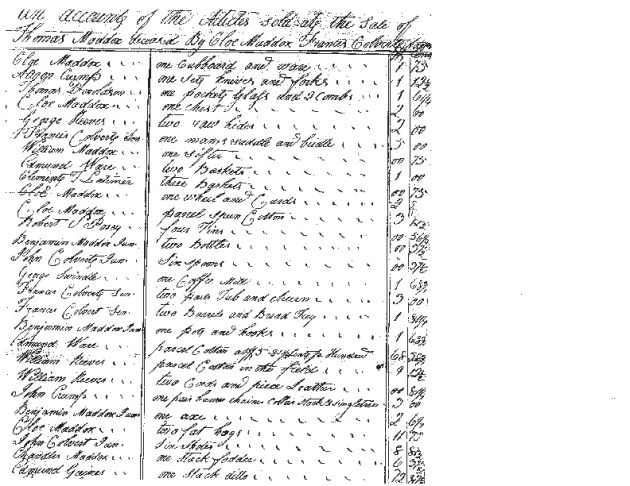 An account of the Articles sold at the Sale of
Thomas Maddox deceased By Cloe Maddox Francis Colvert
Cloe Maddox one Cubboard and ware 75
Crumps one Set knives and forks 1 12½
Thomas one pocket Glass and 2 Combs 1 6¼
Cloe Maddox one Chest 2 00
George Reeves two raw hides 2 00
Francis Colvert Sen one mans saddle and bridle 5 00
William Maddox one Sifter 00 75
Edmund Ware two Baskets 1 00
Clements T Latimer three Baskets 00 75
Cloe Maddox one wheel and Cards 2
Cloe Maddox parcel Spun Cotton 3 12½
Robert P Posey four Tins 00 56¼
Benjamin Maddox Jun two Bottles 00 37½
John Colvert Jun Six spoons 00 37½
George Swindle one Coffee Mill 1 68¾
Francis Colvert Sen two pails Tub and churn 3 00
Francis Colvert Sen two Barrels and Bread Tray 1 31¼
Benjamin Maddox Jun one pot and hooks 1 63¾
Edmund Ware parcel Cotton at $5 pr Hundred 68
William Reeves parcel Cotton in the field 9 12½
William Reeves two Cords and piece Leather 00 81¼
John Crumps one pair hame chains collar &singletree 3 00
Benjamin Maddox Jun one axe 2 6¼
Cloe Maddox two fat hogs 11 75
John Colvert Jun Six 8
Chandler Maddox one Stack fodder 6
Edmund Gaines one Stack ditto 12